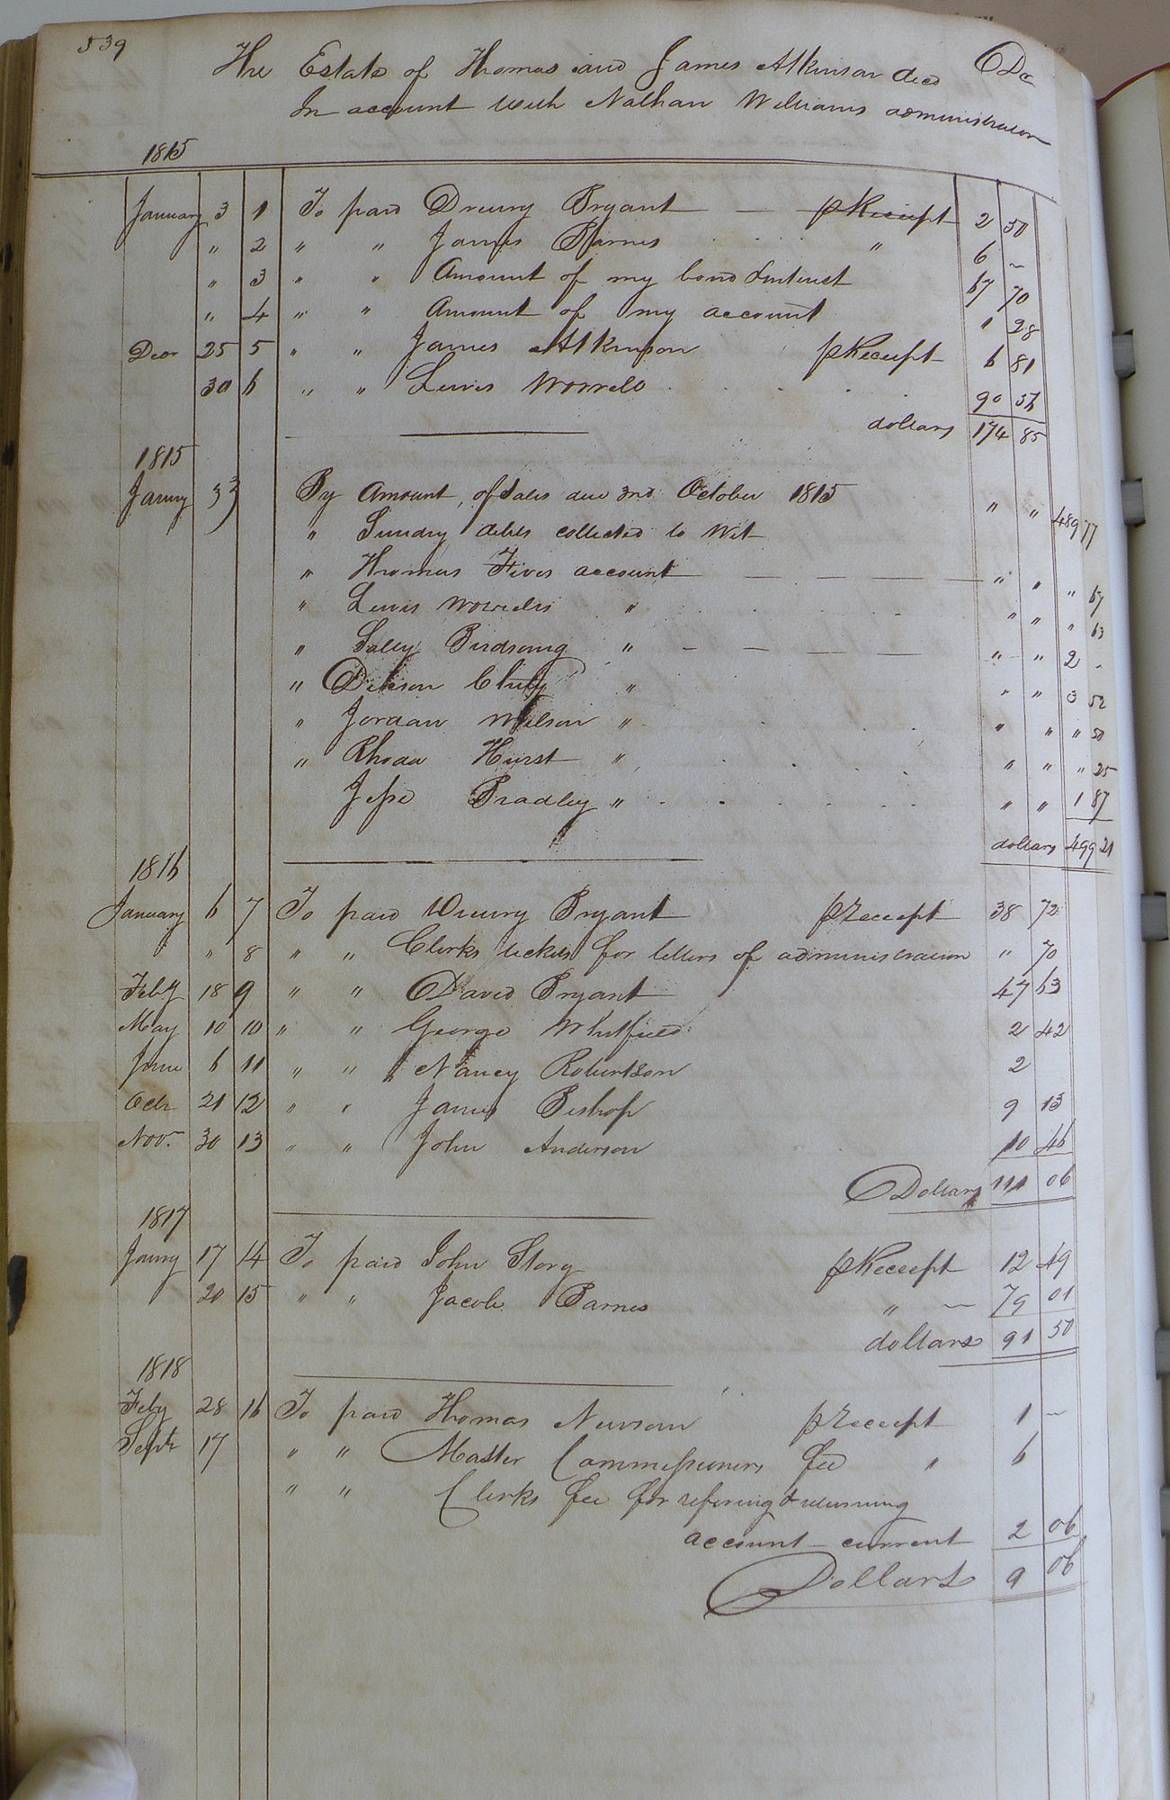 539
The Estate of Thomas and James Atkinson decd Dr
In account with Nathan Williams administrator
1815
January 3 1 To paid Drewry Bryant — p Receipt 2 50
" 2 " " James Barnes " 6 ~
" 3 " " Amount of my bond & interest 67 70
" 4 " " Amount of my account 1 28
Decr 25 5 " " James Atkinson p Receipt 6 81
30 6 " " Lewis Worrell 90 56
dollars 174 85
1815
Janry By Amount of Sales due 3rd October 1815 " " 489 77
" Sundry debts collected to Wit
" Thomas account — — — — " " " 67
" Lewis Worrells " " " " 63
" Sally Birdsong " — — — — " " 2 -
" " " " 3 52
" Jordan Wilson " " " " 50
" Rhoda Hurst " " " " 25
Jesse Bradley " " " 1 87
dollars 499 21
1816
January 6 7 To paid Drewry Bryant p Receipt 38 72
" 8 " " Clerks tickets for letters of administration " 70
Feby 18 9 " " David Bryant 47 63
May 10 10 " " George Whitfield 2 42
June 6 11 " " Nancy Robertson 2
Octr 21 12 " " James Bishop 9 13
Nov. 30 13 " " John Anderson 10 46
Dollars 111 06
1817
Janry 17 14 To paid John Story p Receipt 12 49
20 15 " " Jacob Barnes " — 79 01
dollars 91 50
1818
Feby 28 16 To paid Thomas Newsom p Receipt 1 —
Septr 17 " " Master Commissioners fee " 6
" " Clerks fee for & returning
account current 2 06
Dollars 9 06